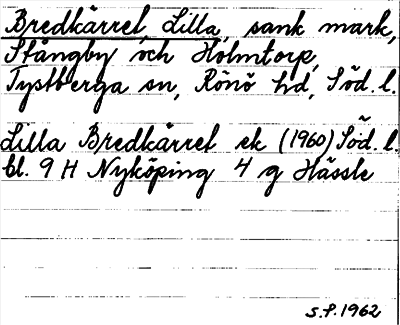 Bredkärret, Lilla, sank mark,
Stångby och Holmtorp,
Tystberga sn, Rönö hd, Söd. l.
Lilla Bredkärret ek (1960) Söd. l.
bl. 9 H Nyköping 4 g Hässle
S.P. 1962